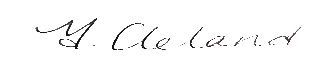 M. Cleland